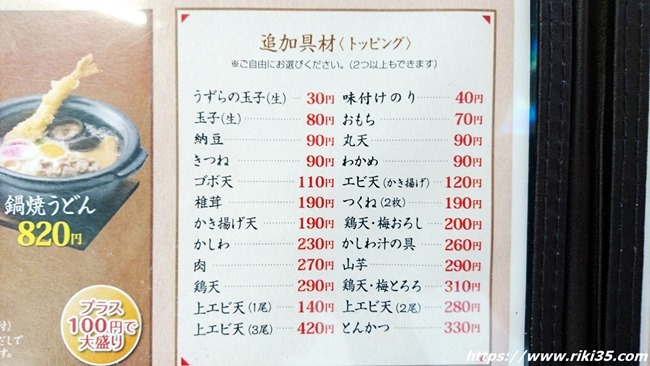 追加具材〈トッピング〉
※ご自由にお選びください。(2つ以上もできます)
うずらの玉子(生) 30円
玉子(生) 80円
納豆 90円
きつね 90円
ゴボ天 110円
椎茸 190円
かき揚げ天 190円
かしわ 230円
肉 270円
鶏天 290円
上エビ天(1尾) 140円
上エビ天(3尾) 420円
味付けのり 40円
おもち 70円
丸天 90円
わかめ 90円
エビ天(かき揚げ) 120円
つくね(2枚) 190円
鶏天・梅おろし 200円
かしわ汁の具 260円
山芋 290円
鶏天・梅とろろ 310円
上エビ天(2尾) 280円
とんかつ 330円
鍋焼うどん
820円
プラス
100円で
大盛り
だしで
す。
https://www.riki35.com